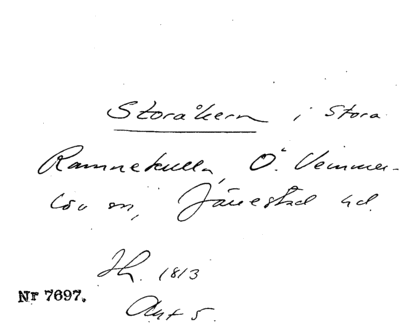 Storåkern i Stora
Ramnekulla, Ö. Vemmer-
löv sn, Järrestad hd.
Jh. 1813
Nr 7697.
Akt 5.